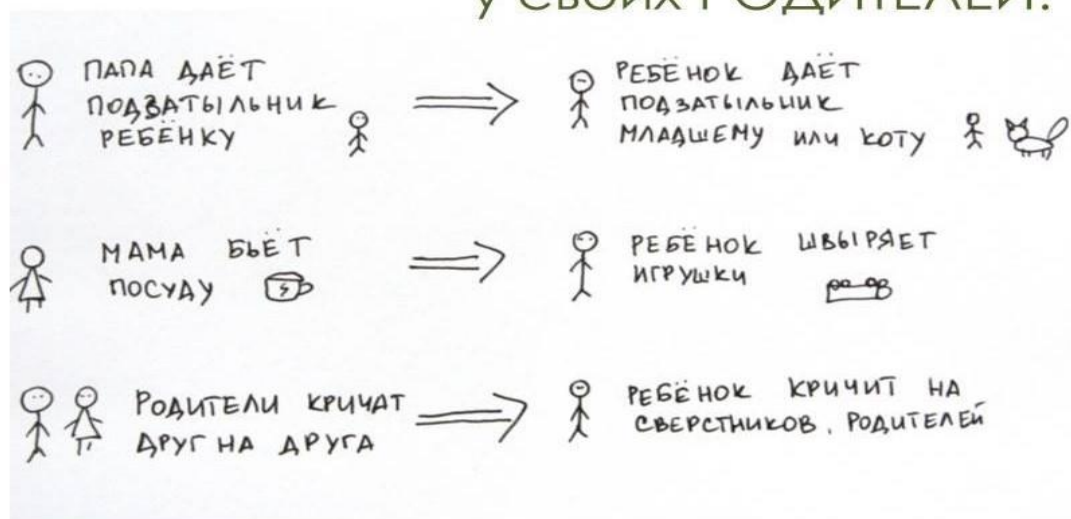 у СВОИХ РОДИТЕЛЕЙ:
ПАПА ДАЁТ
ПОДЗАТЫЛЬНИК
РЕБЁНКУ
РЕБЁНОК ДАЁТ
ПОДЗАТЫЛЬНИК
МЛАДШЕМУ ИЛИ КОТУ
МАМА БЬЁТ
ПОСУДУ
РЕБЁНОК ШВЫРЯЕТ
ИГРУШКИ
РОДИТЕЛИ КРИЧАТ
ДРУГ НА ДРУГА
РЕБЁНОК КРИЧИТ НА
СВЕРСТНИКОВ, РОДИТЕЛЕЙ